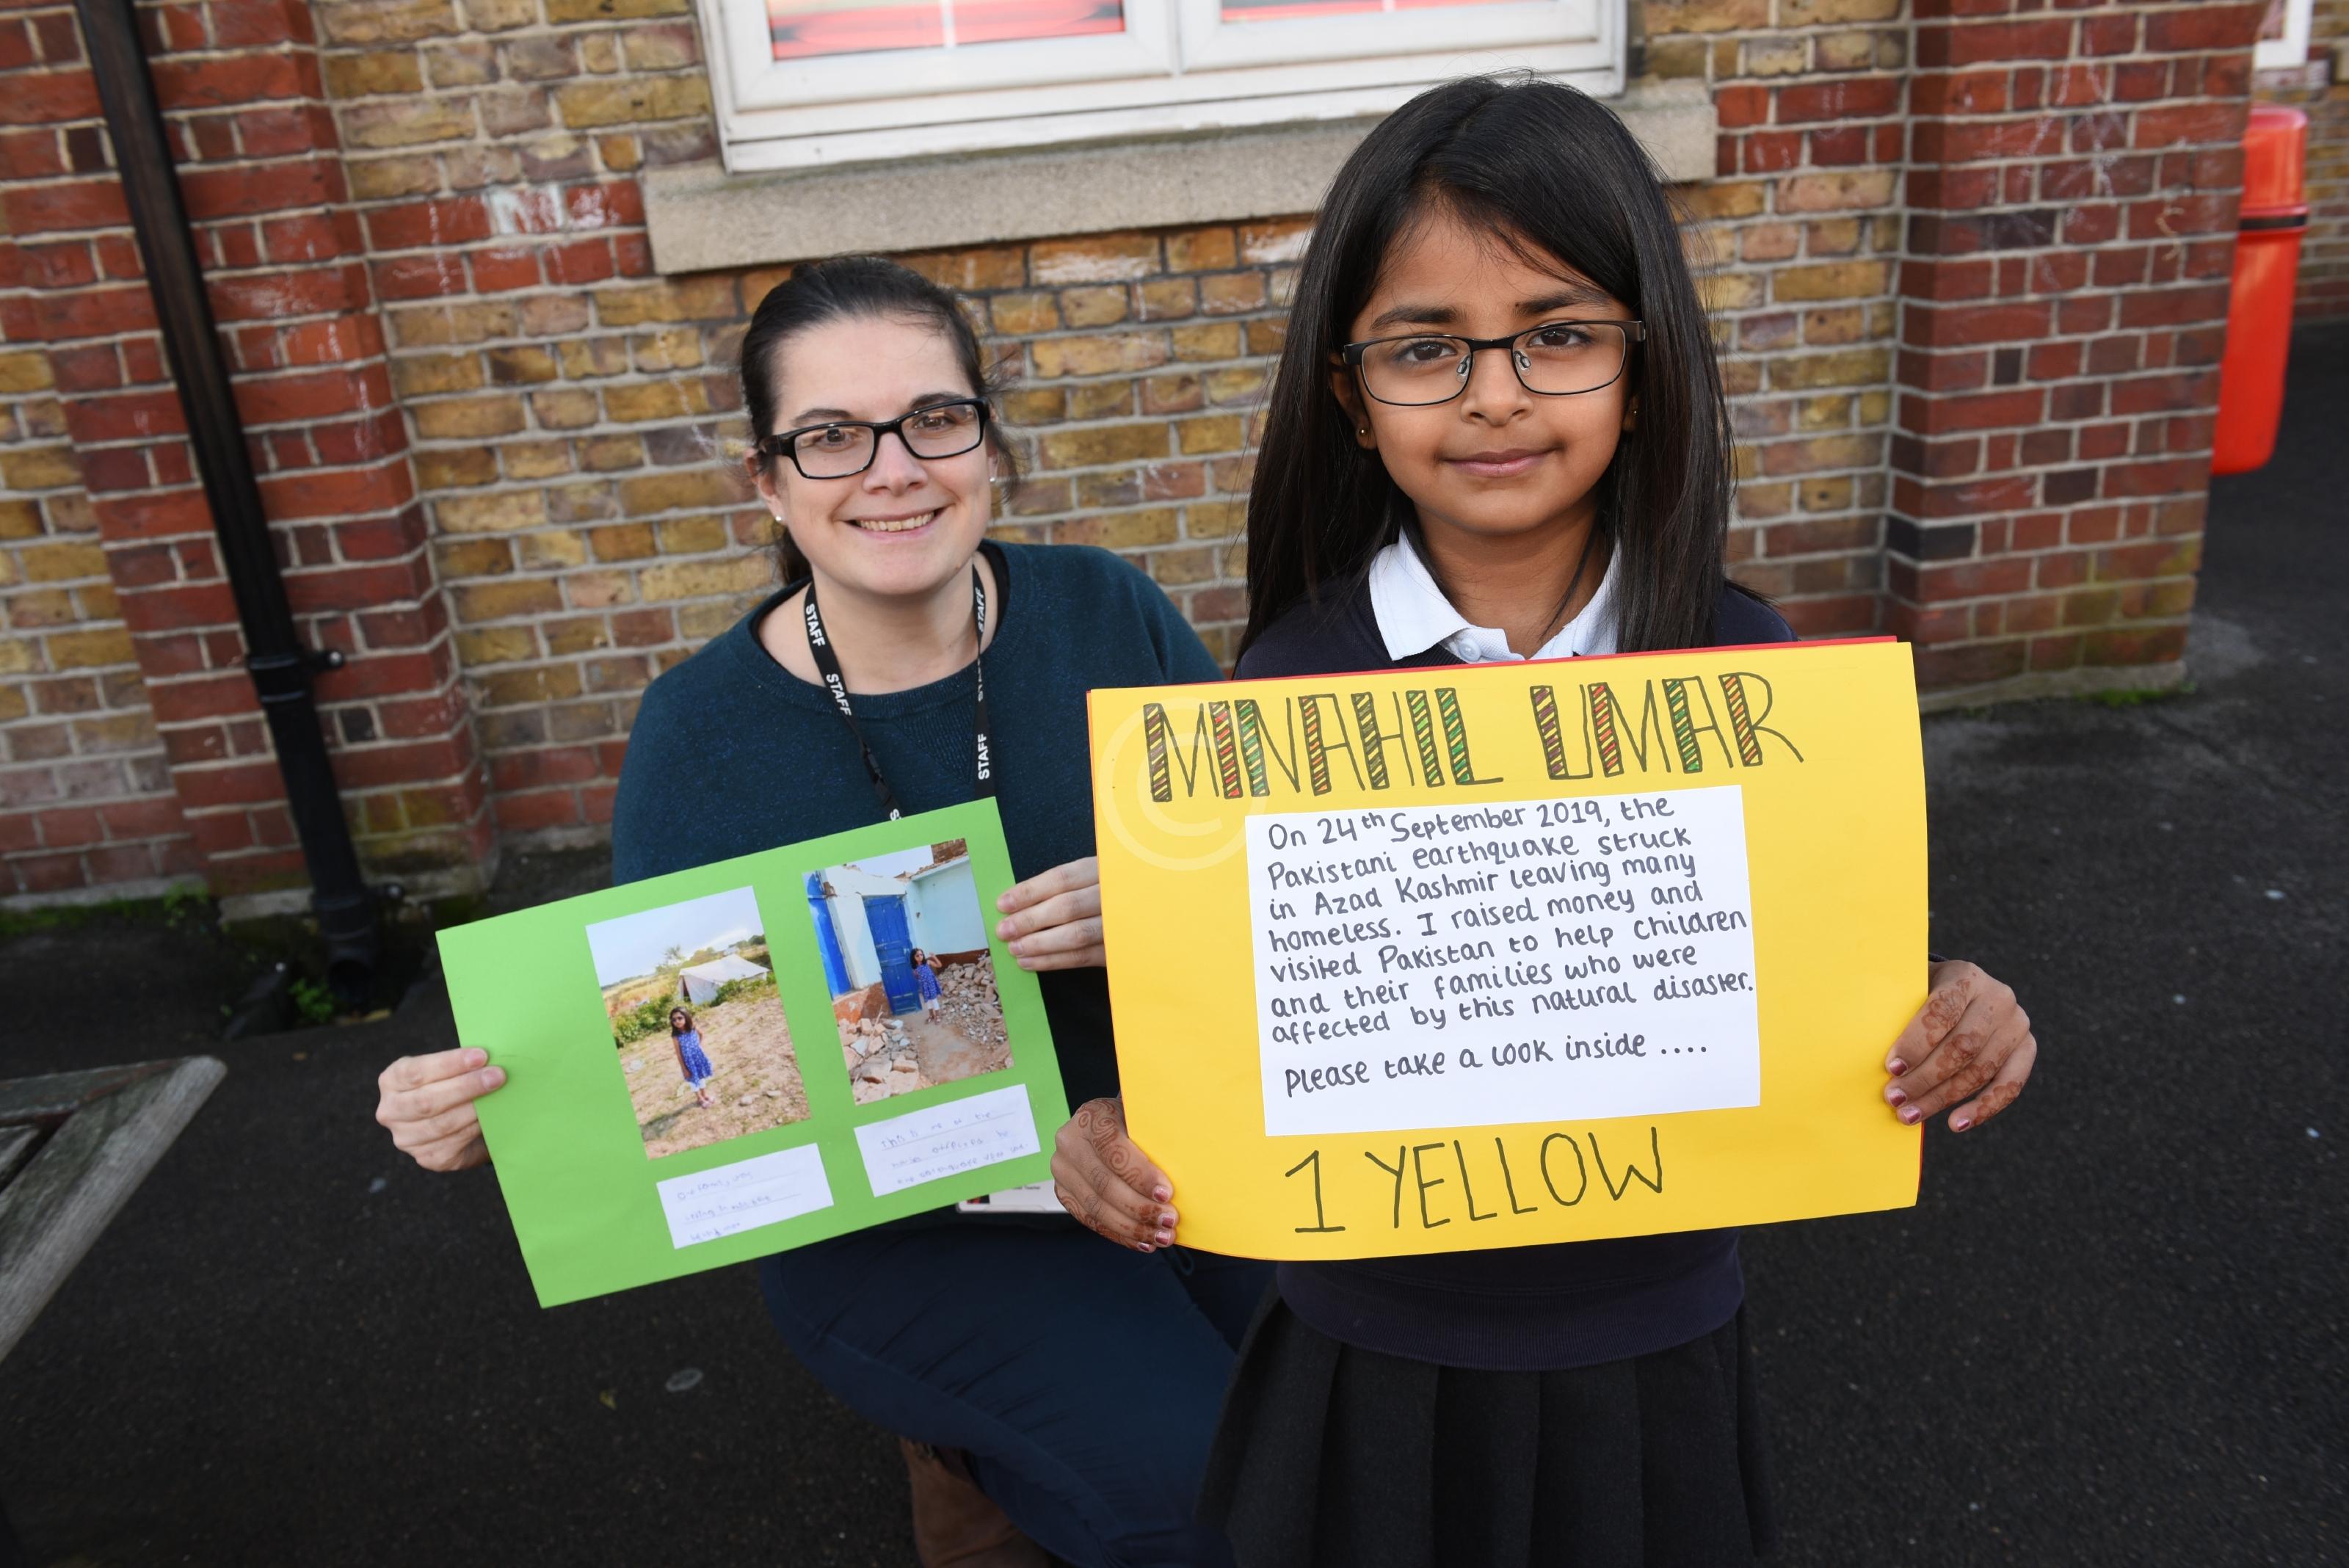 STAFF
STAFF
STAFF
STAFF
STAFF
MINAHIL UMAR
On 24th September 2019, the
Pakistani earthquake struck
in Azad Kashmir leaving many
homeless. I raised money and
visited Pakistan to help children
and their families who were
affected by this natural disaster.
Please take a look inside ....
1 YELLOW
This is me at the